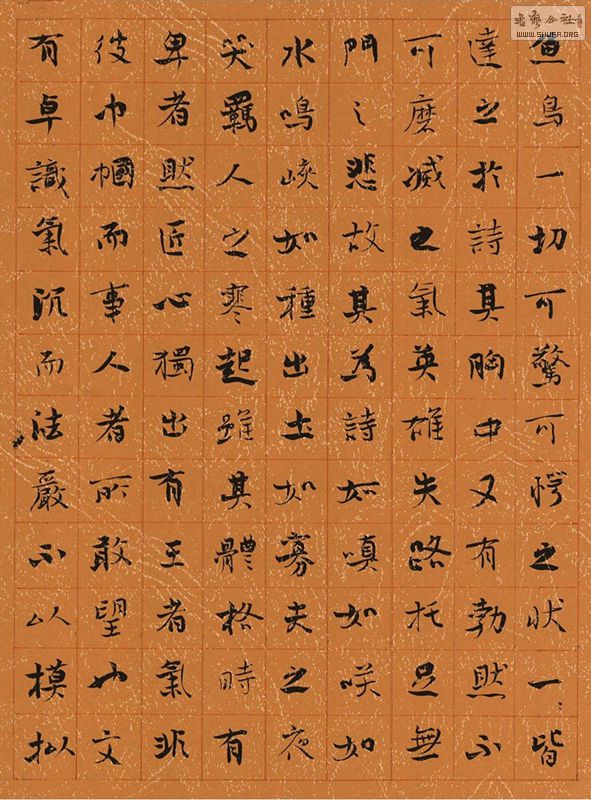 書藝公社
WWW.SHUFA.ORG
魚鳥一切可驚可愕之狀一々皆
達之於詩其胸中又有勃然不
可磨滅之氣英雄失路托足無
門之悲故其為詩如嗔如咲如
水鳴峽如種出土如寡夫之夜
哭羈人之寒起雖其體格時有
卑者然匠心獨出有王者氣非
彼巾幗而事人者所敢望也文
有卓識氣沉而法嚴不以摸拟